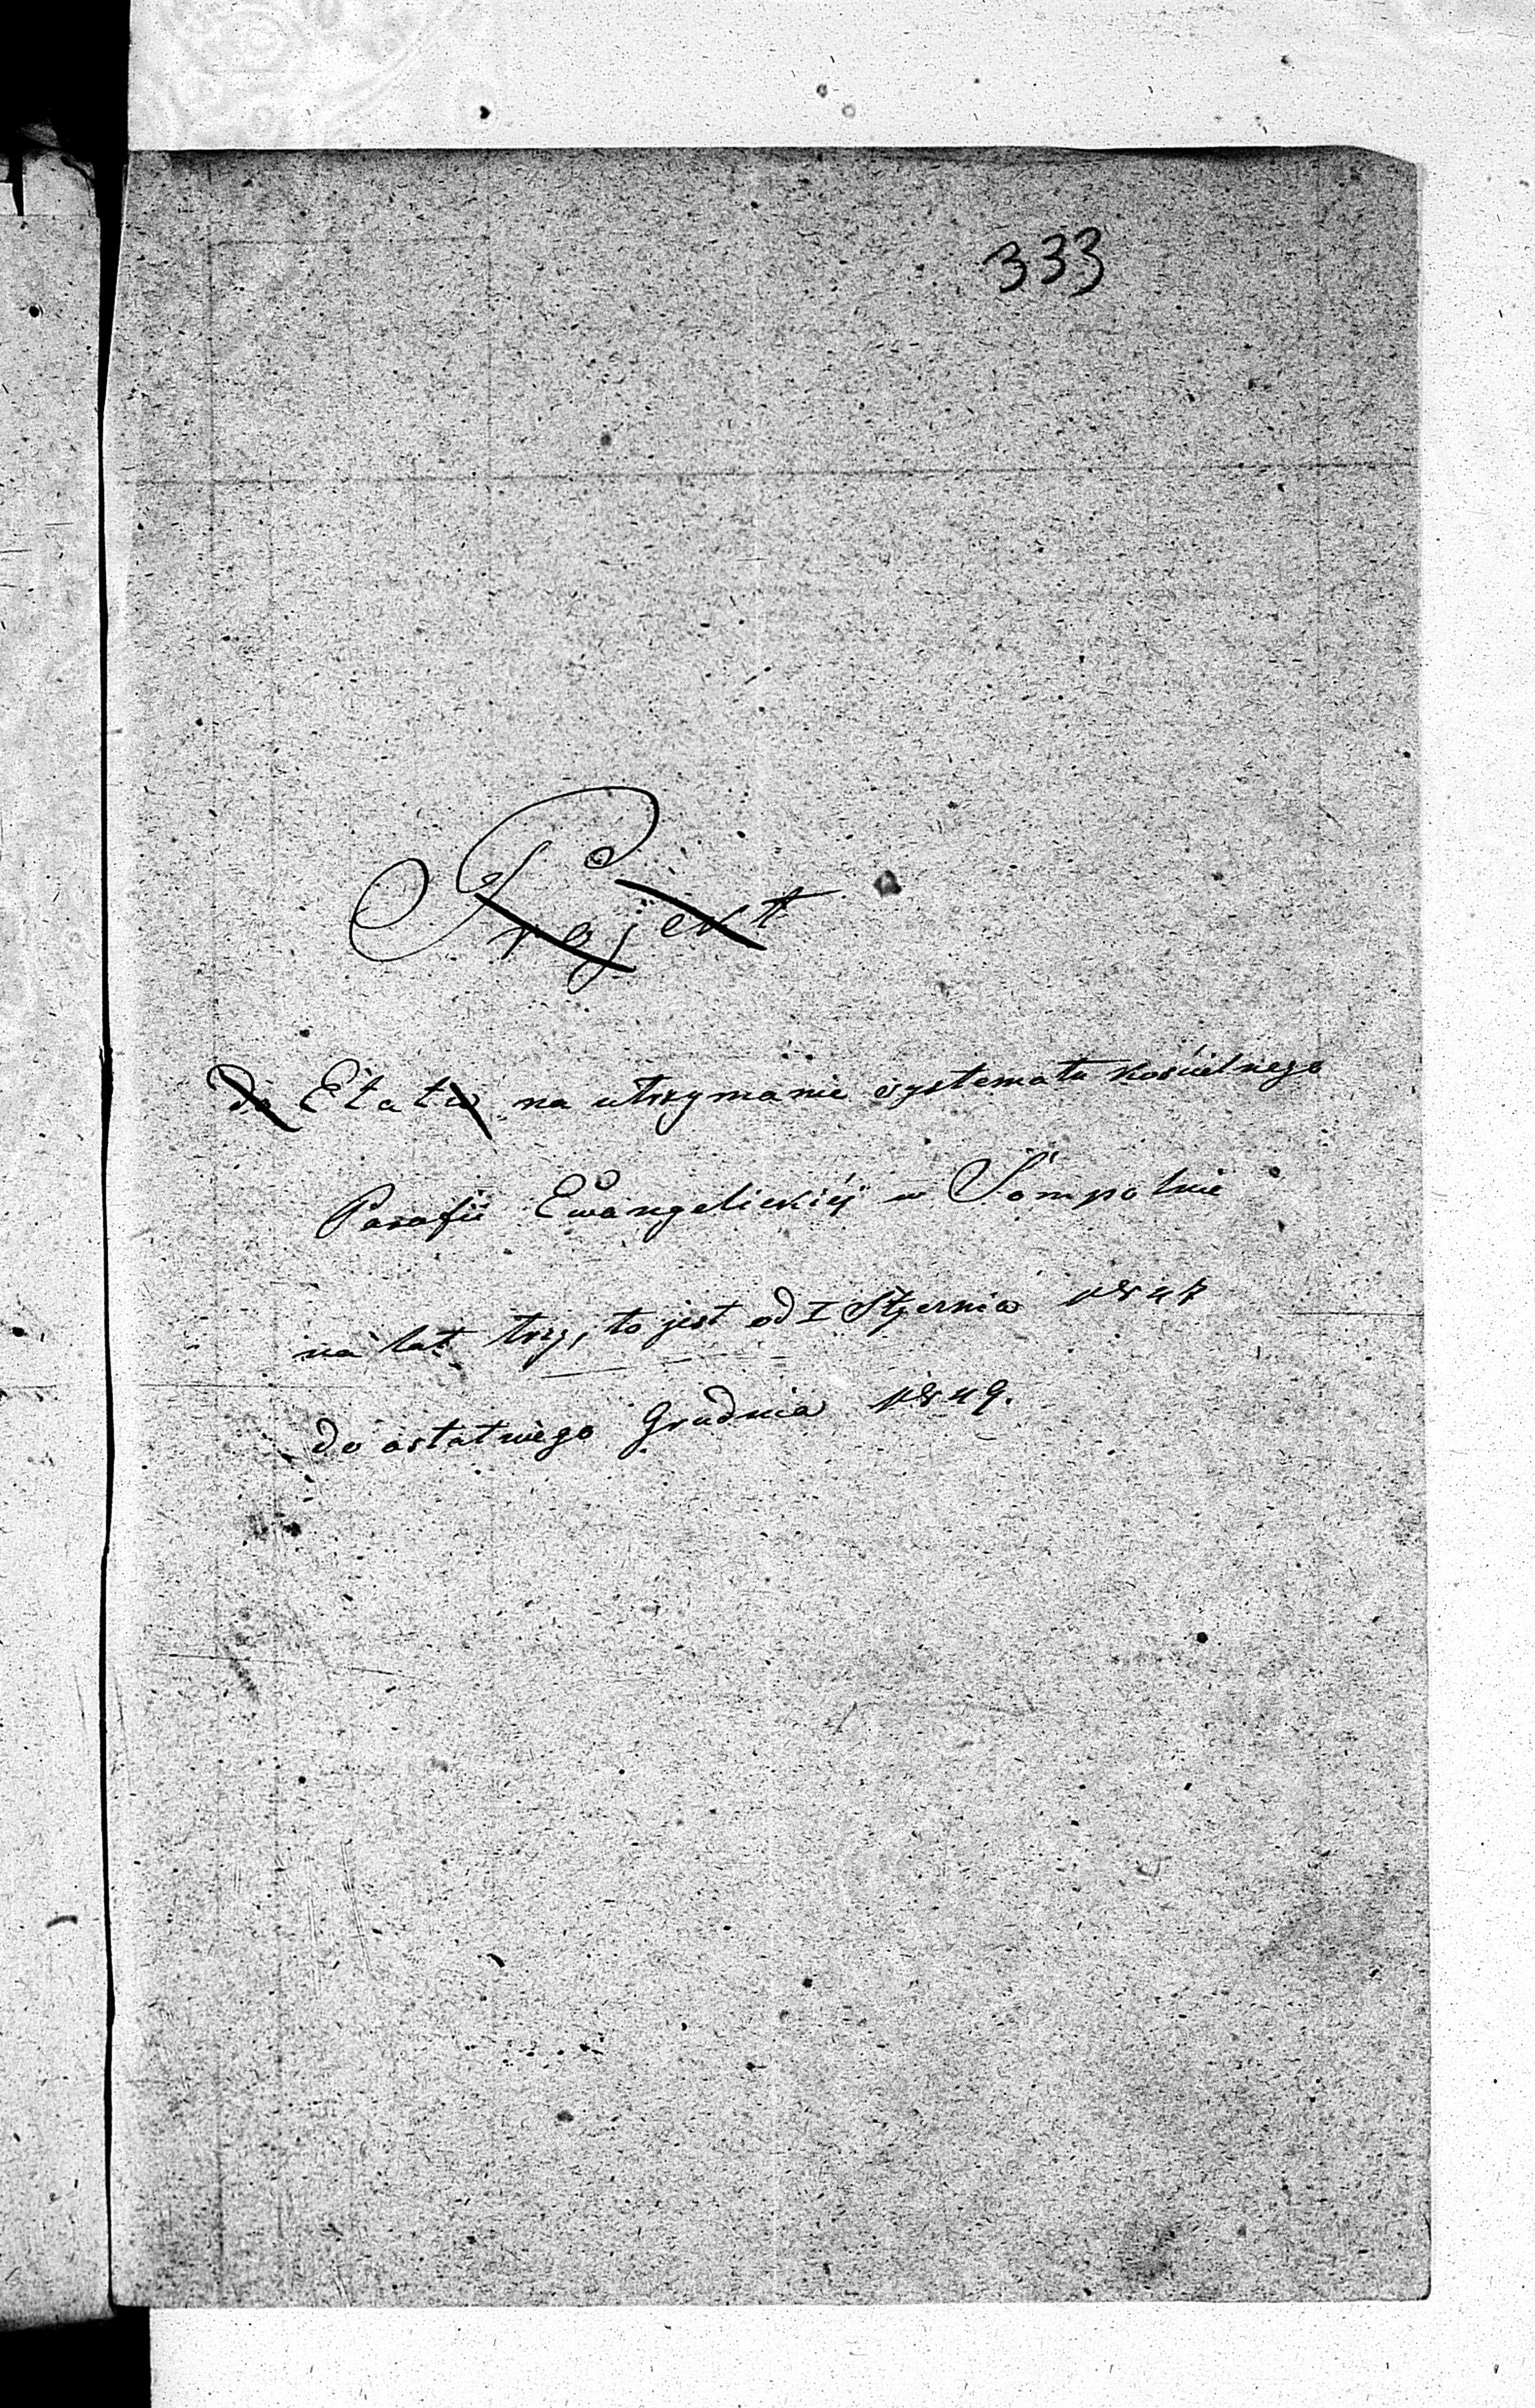 333
Projekt
do Etatu na utrzymanie systematu kościelnego
Parafii Ewangelickiéj w Sompolnie
na lat trzy, to jest od 1 Stycznia 1847
do ostatniego Grudnia 1849.